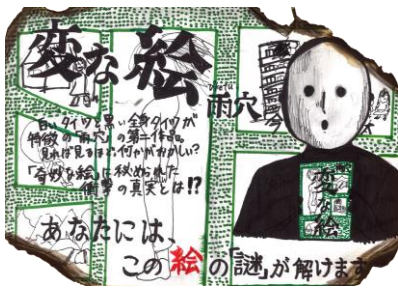 変な絵
uketu
雨穴
白いタイツと黒い全身タイツが
特徴の「雨穴」の第二作目。
見れば見るほど、何かがおかしい?
「奇妙な絵」に秘められた
衝撃の真実とは!?
変な絵
あなたには、
この絵の「謎」が解けます